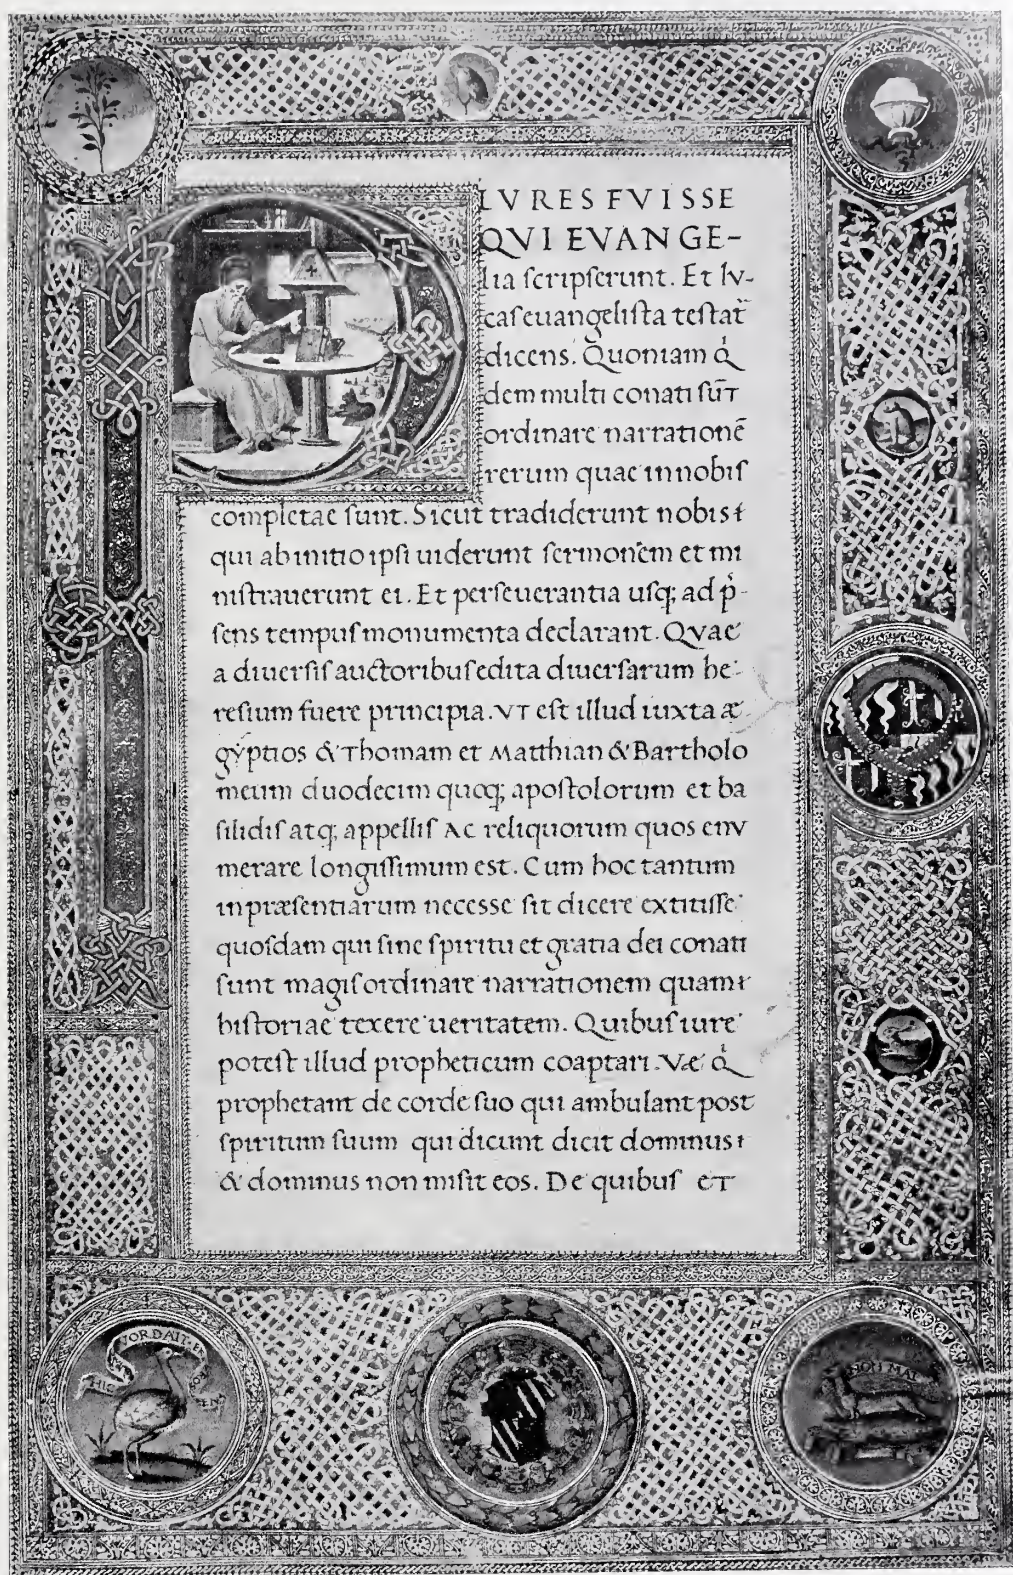 PLVRES FVISSE
QVI EVANGE-
lia ſcripſerunt. Et lv-
caſ euangeliſta teſtat̄
dicens. Quoniam q̍
dem multi conati ſūT
ordinare narrationē
rerum quae in nobiſ
completae ſunt. Sicut tradiderunt nobis
qui ab initio ipſi uiderunt ſermonem et mi
niſtrauerunt ei. Et perſeuerantia uſq; ad p̍-
ſens tempuſ monumenta declarant. Quae
a diuerſiſ auctoribuſ edita diuerſarum he-
reſium fuere principia. VT eſt illud iuxta æ
gyptios & Thomam et Matthian & Bartholo
meum duodecim quoq; apoſtolorum et ba
ſilidiſ atq; appelliſ Ac reliquorum quos env
merare longiſſimum est. Cum hoc tantum
in præſentiarum necesse ſit dicere extitiſſe
quoſdam qui ſine ſpiritu et gratia dei conati
ſunt magiſ ordinare narrationem quam
hiſtoriae texere ueritatem. Quibuſ iure
poteſt illud propheticum coaptari. Væ q̍
prophetant de corde ſuo qui ambulant post
ſpiritum ſuum qui dicunt dicit dominus
& dominus non miſit eos. De quibuſ eT
NON MAI